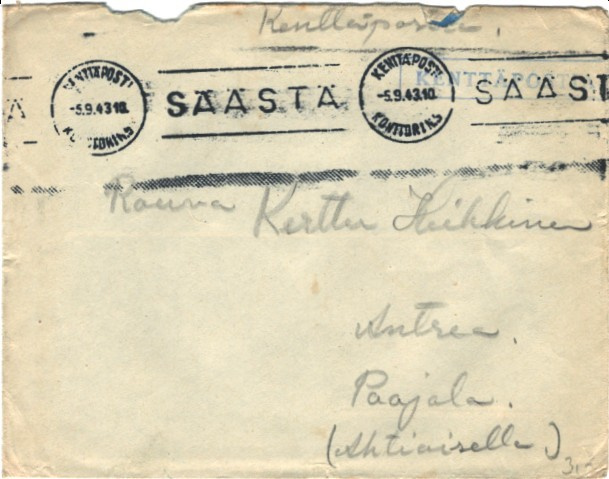 Kenttäpostia.
KENTTÄPOST
KENTTÄPOSTI KENTTÄPOSTI
Ä -5.9.43.10. SÄÄSTÄ -5.9.43.10. SÄÄST
KONTTORI KONTTORI
Rouva Kerttu Heikkinen
Antrea.
Paajala.
(Ahtiaisella)